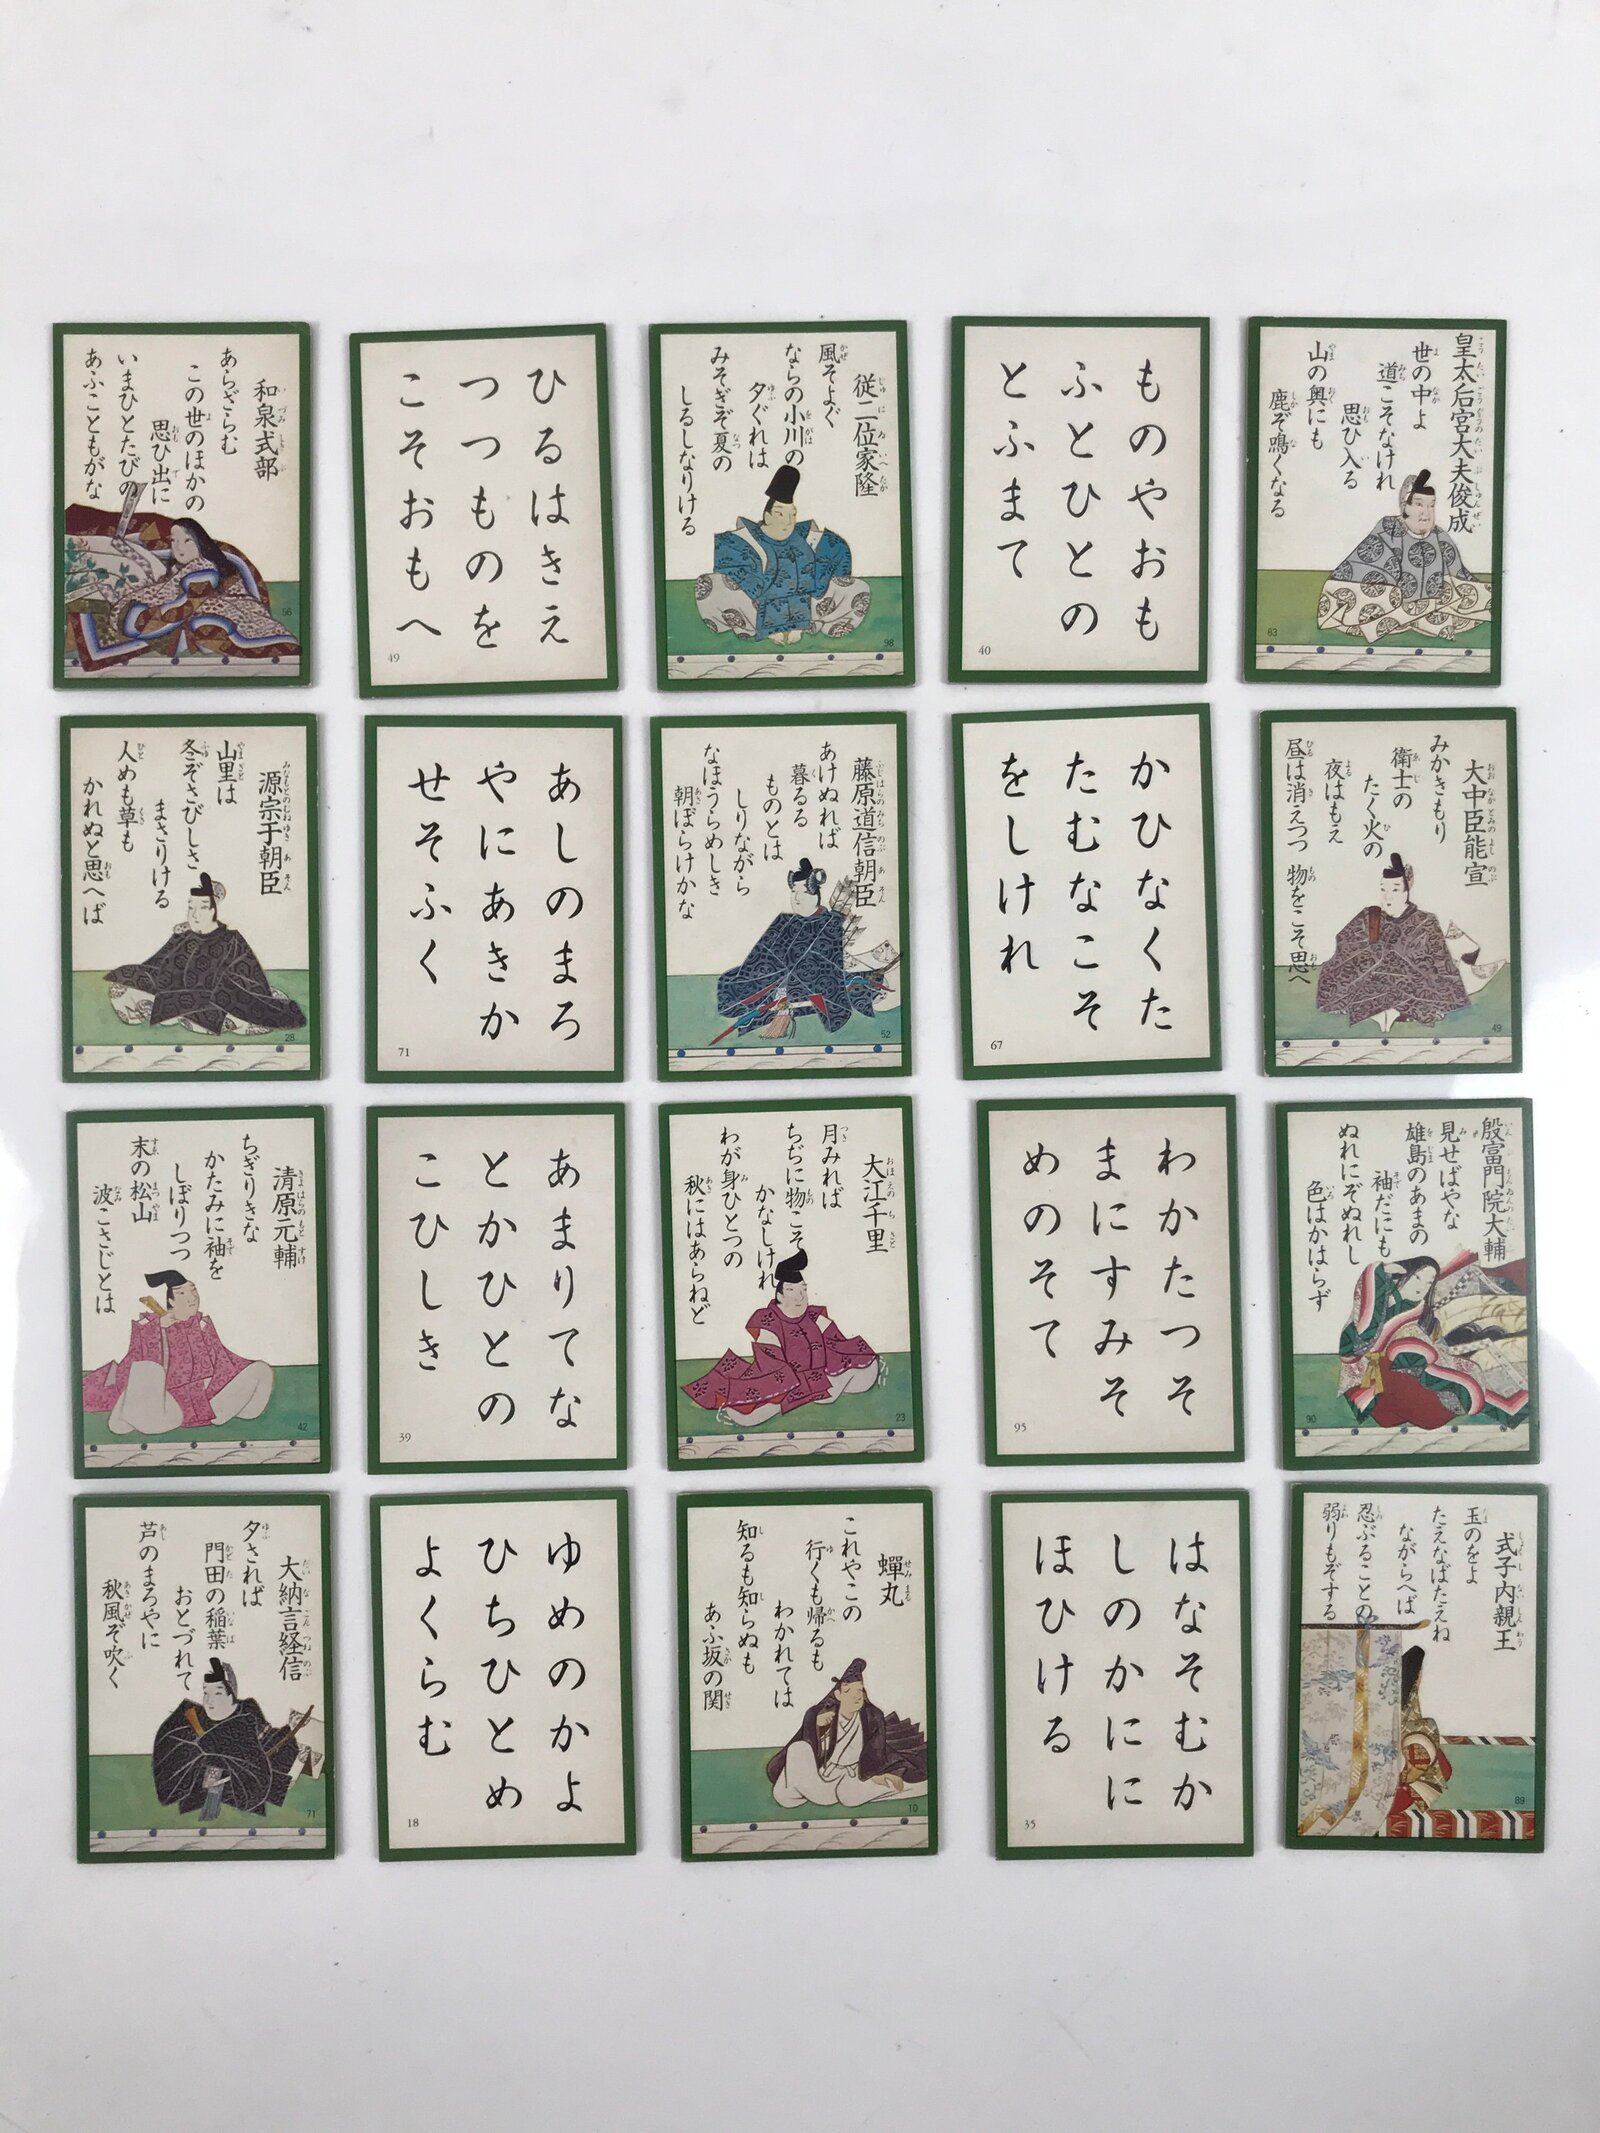 和泉式部
あらざらむ
この世のほかの
思ひ出に
いまひとたびの
あふこともがな
56
ひるはきえ
つつものを
こそおもへ
49
従二位家隆
風そよぐ
ならの小川の
夕ぐれは
みそぎぞ夏の
しるしなりける
98
ものやおも
ふとひとの
とふまて
40
皇太后宮大夫俊成
世の中よ
道こそなけれ
思ひ入る
山の奥にも
鹿ぞ鳴くなる
83
源宗于朝臣
山里は
冬ぞさびしさ
まさりける
人めも草も
かれぬと思へば
28
あしのまろ
やにあきか
せそふく
71
藤原道信朝臣
あけぬれば
暮るる
ものとは
しりながら
なほうらめしき
朝ぼらけかな
52
かひなくた
たむなこそ
をしけれ
67
大中臣能宣
みかきもり
衛士の
たく火の
夜はもえ
昼は消えつつ 物をこそ思へ
49
清原元輔
ちぎりきな
かたみに袖を
しぼりつつ
末の松山
波こさじとは
42
あまりてな
とかひとの
こひしき
39
大江千里
月みれば
ちぢに物こそ
かなしけれ
わが身ひとつの
秋にはあらねど
23
わかたつそ
まにすみそ
めのそて
95
殷富門院大輔
見せばやな
雄島のあまの
袖だにも
ぬれにぞぬれし
色はかはらず
90
大納言経信
夕されば
門田の稲葉
おとづれて
芦のまろやに
秋風ぞ吹く
71
ゆめのかよ
ひちひとめ
よくらむ
18
蟬丸
これやこの
行くも帰るも
わかれては
知るも知らぬも
あふ坂の関
10
はなそむか
しのかにに
ほひける
35
式子内親王
玉のをよ
たえなばたえね
ながらへば
忍ぶることの
弱りもぞする
89